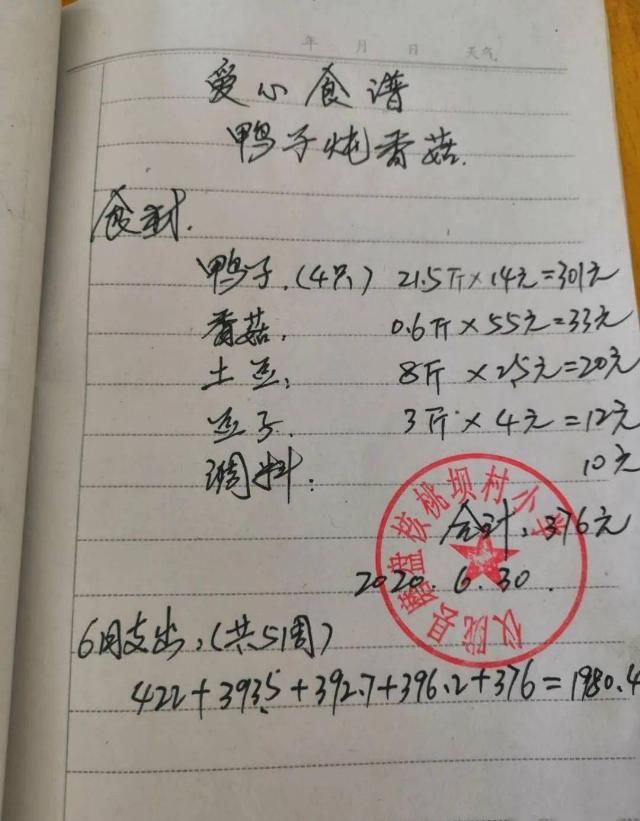 年 月 日 天气
爱心食谱
鸭子炖香菇.
食材.
鸭子.(4只) 21.5斤×14元=301元
香菇. 0.6斤×55元=33元
土豆. 8斤×2.5元=20元
豆子. 3斤×4元=12元
调料. 10元
合计:376元
2020.6.30.
仪陇县 盘核桃坝村小学
6月支出:(共5周)
422+393.5+392.7+396.2+376=1980.4